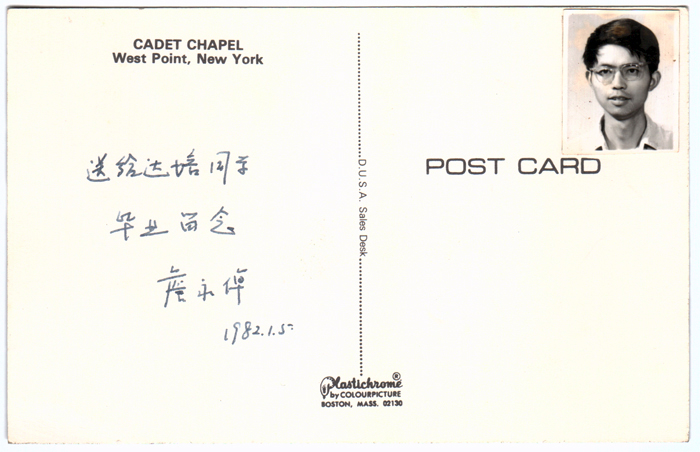 CADET CHAPEL
West Point, New York
送给达培同学
毕业留念
詹永伟
1982.1.5
D.U.S.A. Sales Desk
POST CARD
Plastichrome®
by COLOURPICTURE
BOSTON, MASS. 02130